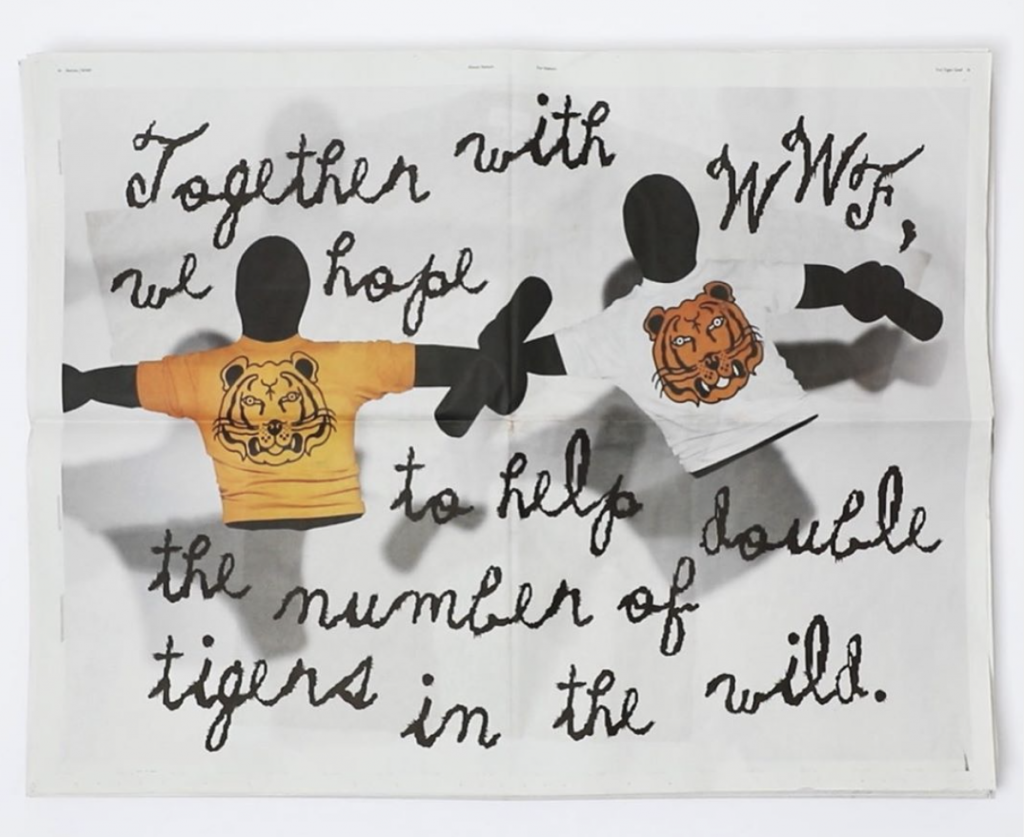 Together with WWF,
we hope
to help double
the number of
tigers in the wild.